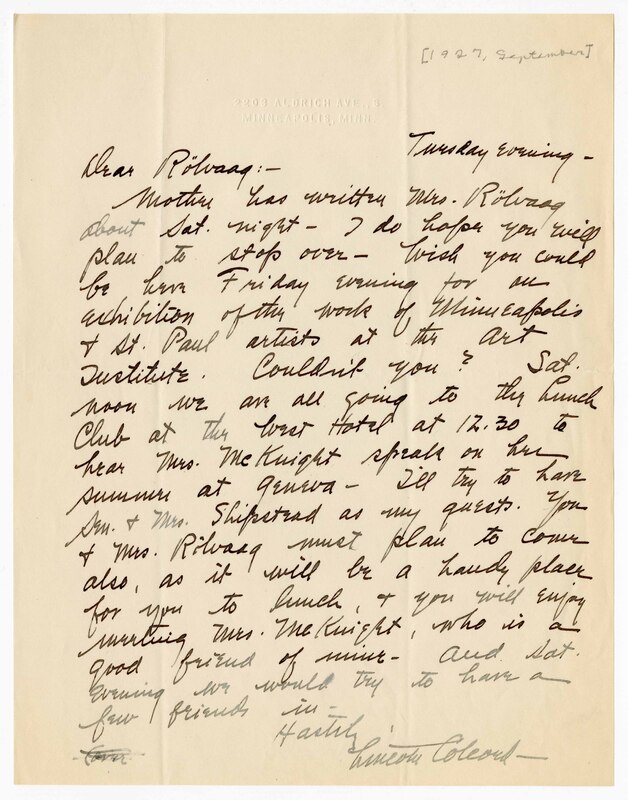 [1927, September]
2203 ALDRICH AVE., S.
MINNEAPOLIS, MINN.
Tuesday evening -
Dear Rölvaag:-
Mother has written Mrs. Rölvaag
about Sat. night - I do hope you will
plan to stop over - Wish you could
be here Friday evening for an
exhibition of the work of Minneapolis
& St. Paul artists at the Art
Institute. Couldn't you? Sat.
noon we are all going to the Lunch
Club at the West Hotel at 12.30 to
hear Mrs. McKnight speak on her
summer at Geneva - I'll try to have
Sen. & Mrs. Shipstead as my guests. You
& Mrs. Rölvaag must plan to come
also, as it will be a handy place
for you to lunch, & you will enjoy
meeting Mrs. McKnight, who is a
good friend of mine - And Sat.
evening we would try to have a
few friends in -
Hastily,
Lincoln Colcord -
(over)